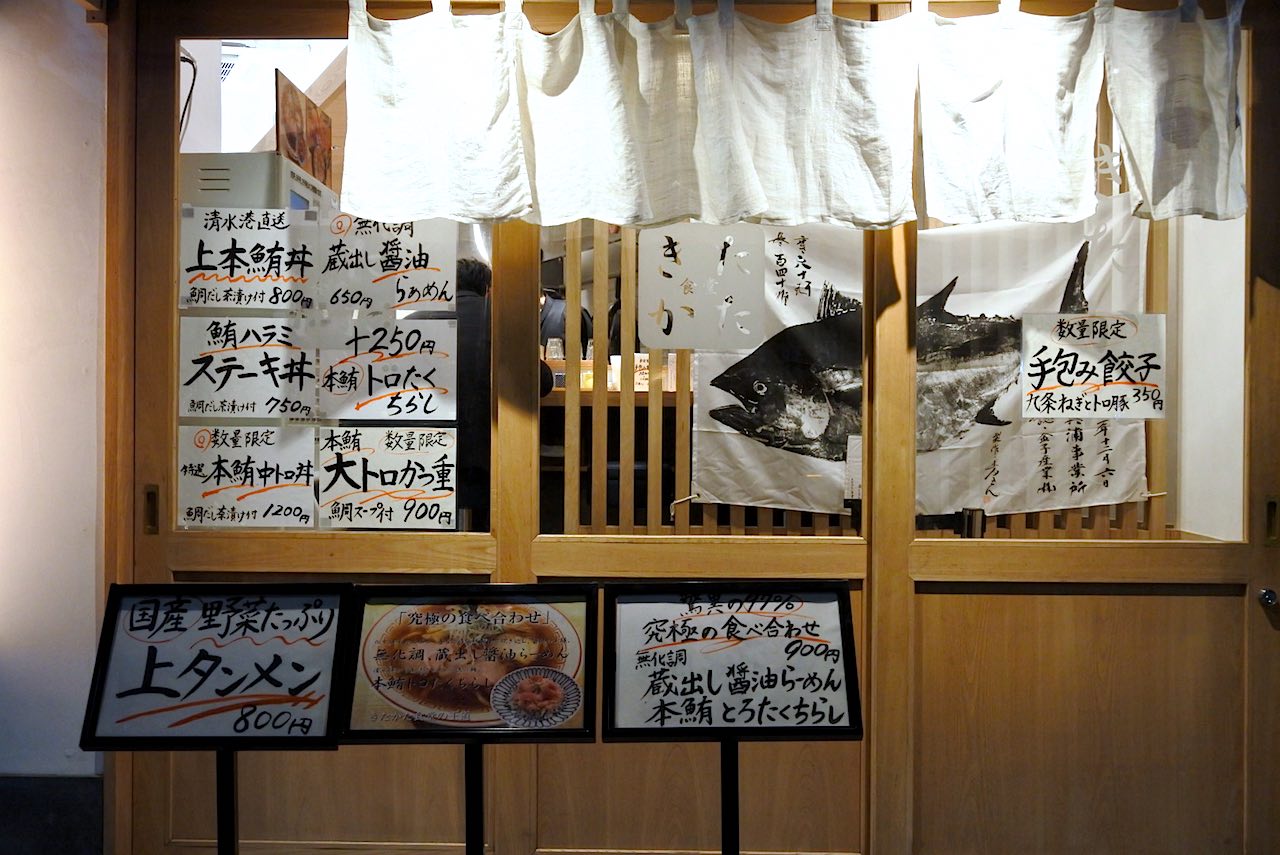 清水港直送
上本鮪丼
鯛だし茶漬け付 800円
無化調
蔵出し醤油
らぁめん
650円
鮪ハラミ
ステーキ丼
鯛だし茶漬け付 750円
+250円
本鮪 トロたく
ちらし
数量限定
特選 本鮪中トロ丼
鯛だし茶漬け付 1200円
本鮪 数量限定
大トロかつ重
鯛スープ付 900円
きたかた
食堂
数量限定
手包み餃子
九条ねぎとトロ豚 350円
国産野菜たっぷり
上タンメン
800円
「究極の食べ合わせ」
無化調、蔵出し醤油らーめん
本鮪トロたくちらし
驚異の99%
究極の食べ合わせ
900円
無化調
蔵出し醤油らーめん
本鮪 とろたくちらし